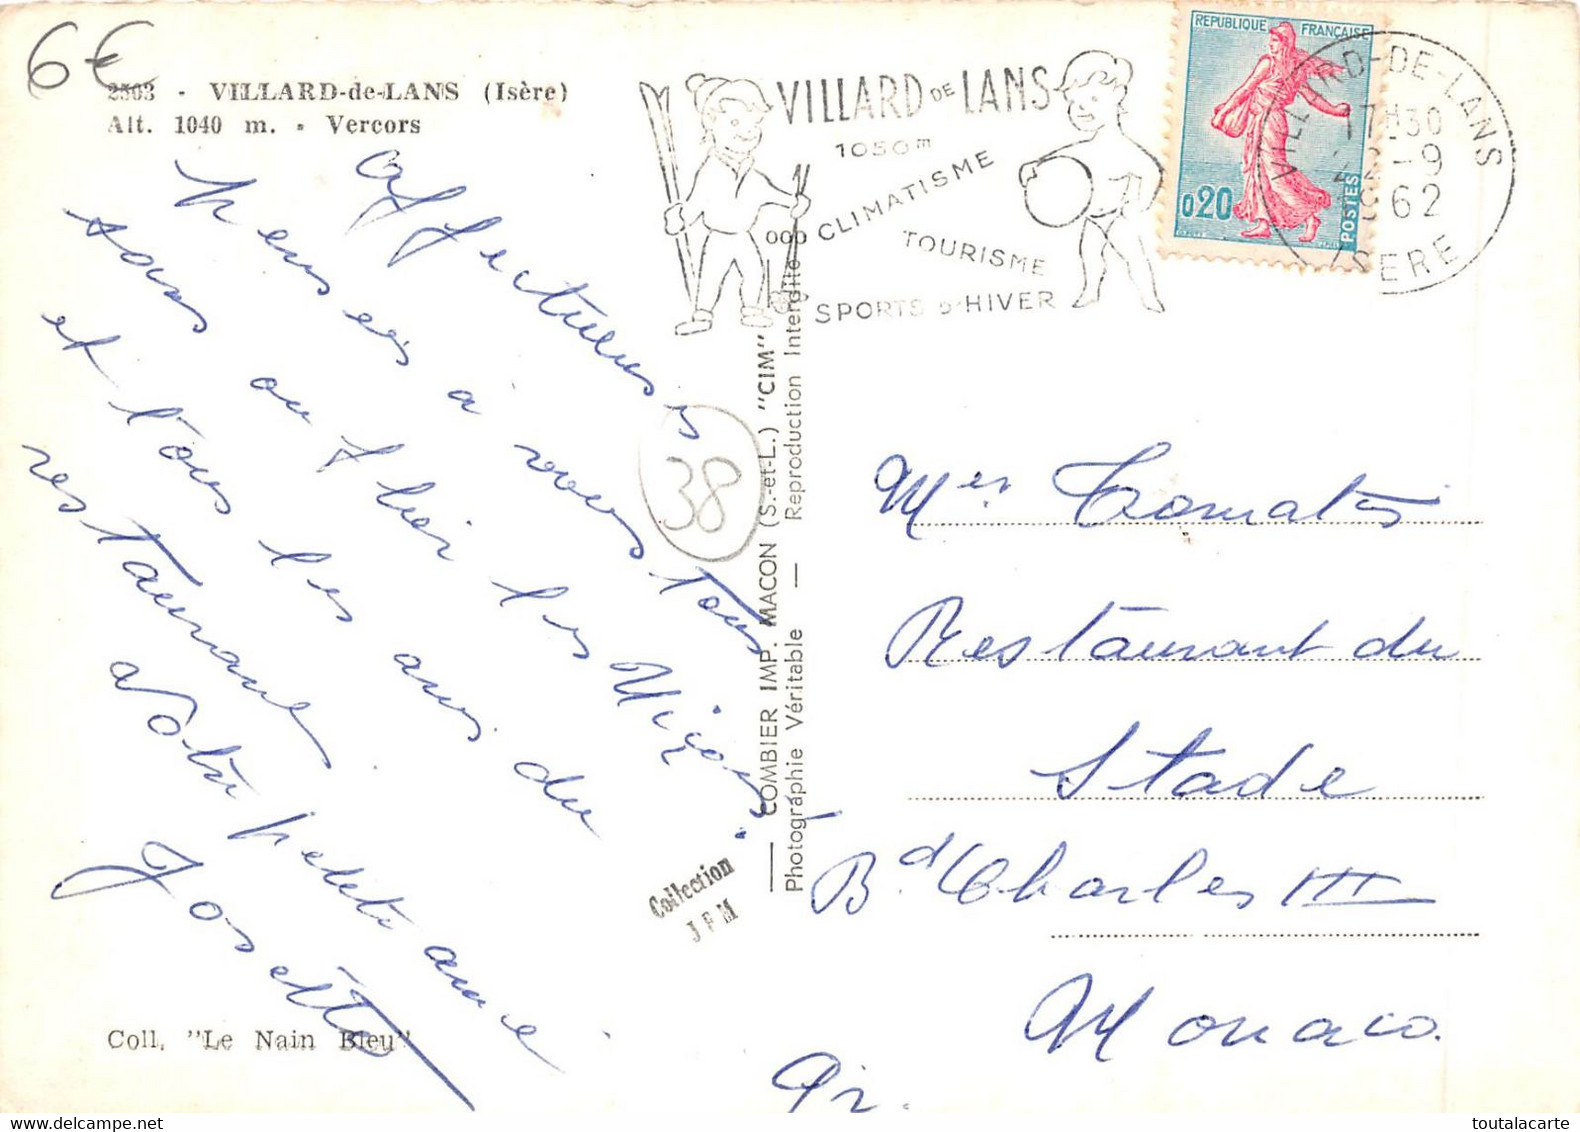 6€
2503 - VILLARD-de-LANS (Isère)
Alt. 1040 m. - Vercors
VILLARD DE LANS
1050m
CLIMATISME
TOURISME
SPORTS D'HIVER
REPUBLIQUE FRANÇAISE
0,20
POSTES
VILLARD-DE-LANS
17H30
22-9
1962
ISERE
Affectueuses
pensées à vous tous
sans oublier les
et tous les amis du
restaurant
Votre petite amie
Josette
38
COMBIER IMP. MACON (S.-et-L.) "CIM"
Photographie Véritable — Reproduction Interdite
Collection
JPM
Coll. "Le Nain Bleu"
Mer Tomatis
Restaurant du
Stade
Bd Charles III
Monaco.
Pr.
toutalacarte